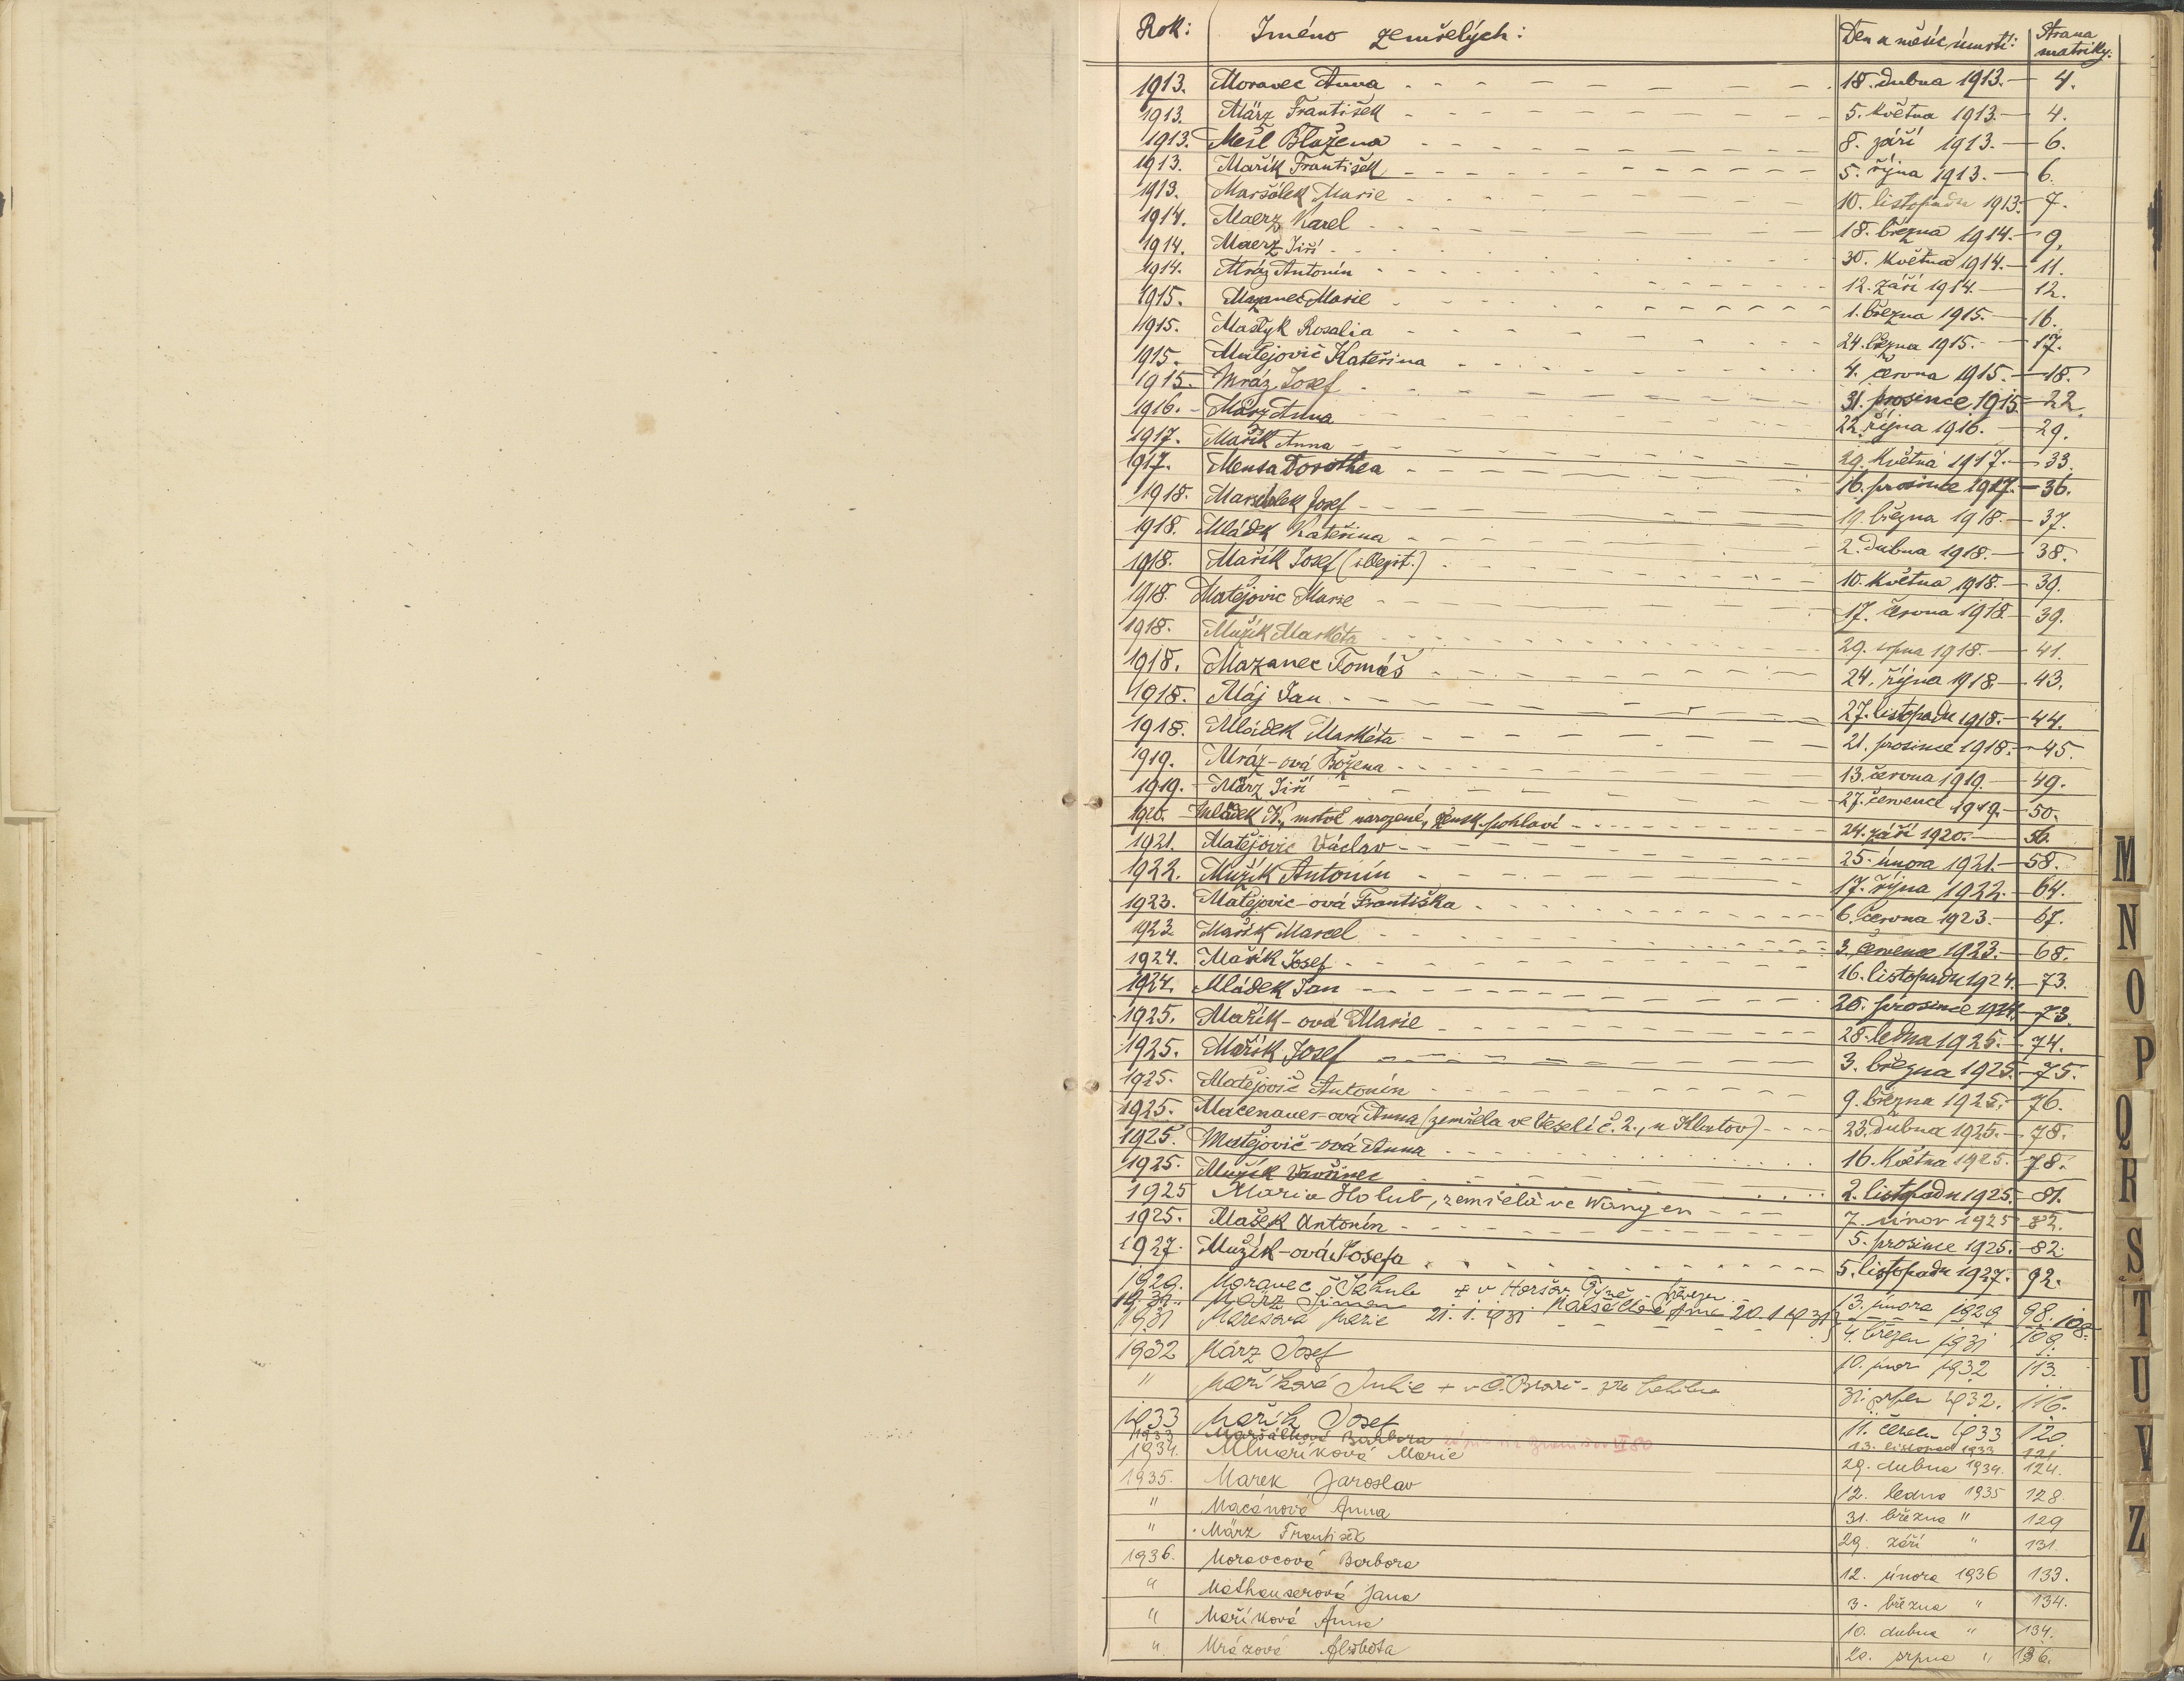 Rok: Jméno zemřelých: Den a měsíc úmrtí: Strana matriky:
1913. Moravec Anna 18. dubna 1913. 4.
1913. März František 5. května 1913. 4.
1913. Mešl Blažena 8. září 1913. 6.
1913. Mařík František 5. října 1913. 6.
1913. Maršálek Marie 10. listopadu 1913. 7.
1914. Maerz Karel 18. března 1914. 9.
1914. Maerz Jiří 30. května 1914. 11.
1914. Mráz Antonín 12. září 1914. 12.
1915. Mazanec Marie 1. března 1915. 16.
1915. Mastyk Rosalia 24. března 1915. 17.
1915. Matějovič Kateřina 4. června 1915. 18.
1915. Mráz Josef 31. prosince 1915. 22.
1916. März Anna 22. října 1916. 29.
1917. Mařík Anna 29. května 1917. 33.
1917. Mensa Dorothea 16. prosince 1917. 36.
1918. Marschalek Josef 19. března 1918. 37.
1918. Mládek Kateřina 2. dubna 1918. 38.
1918. Mařík Josef (illegit.) 10. května 1918. 39.
1918. Matějovic Marie 17. června 1918 39.
1918. Mužík Markéta 29. srpna 1918. 41.
1918. Mazanec Tomáš 24. října 1918. 43.
1918. Máj Jan 27. listopadu 1918. 44.
1918. Mládek Markéta 21. prosince 1918. 45.
1919. Mráz-ová Božena 13. června 1919. 49.
1919. März Jiří 27. července 1919. 50.
1920. Mládek N., mrtvě narozené, žensk. pohlaví 24. září 1920. 56.
1921. Matějovic Václav 25. února 1921. 58.
1922. Mužík Antonín 17. října 1922. 64.
1923. Matějovic-ová Františka 6. června 1923. 67.
1923. Mařík Marcel 3. července 1923. 68.
1924. Mařík Josef 16. listopadu 1924. 73.
1924. Mládek Jan 26. prosince 1924. 73.
1925. Mařík-ová Marie 28. ledna 1925. 74.
1925. Mařík Josef 3. března 1925. 75.
1925. Matějovič Antonín 9. března 1925. 76.
1925. Macenauer-ová Anna (zemřela ve Veselí č. 2., u Klatov) 23. dubna 1925. 78.
1925. Matějovič-ová Anna 16. května 1925. 78.
1925. Mužík Vavřinec 2. listopadu 1925. 81.
1925 Maria Holub, zemřelá ve Wangen 7. únor 1925 82.
1925. Mašek Antonín 5. prosince 1925. 82.
1927. Mužík-ová Josefa 5. listopadu 1927. 92.
1929. Moravec + v Horšov. Týně 13. února 1929 98.
19.31. März Šimon 20. 1. 1931 108.
1931 Marešová Marie 21. 1. 1931 4. březen 1931 109.
1932 März Josef 10. únor 1932 113.
" Maříková Julie + v 31. srpen 1932. 116.
1933 Mařík Josef 11. 1933 120.
1933 Maršálková Barbora VI 80 13. listopad 1933 121
1934. Mlnaříková Marie 29. dubna 1934. 124.
1935. Marek Jaroslav 12. ledna 1935 128.
" Macánová Anna 31. března " 129
" März František 29. září " 131.
1936. Moravcová Barbora 12. února 1936 133.
" Mathauserová Jana 3. března " 134.
" Maříková Anna 10. dubna " 134.
" Mrázová Alžběta 20. srpna " 136.
M
N
O
P
Q
R
S
T
U
V
Z